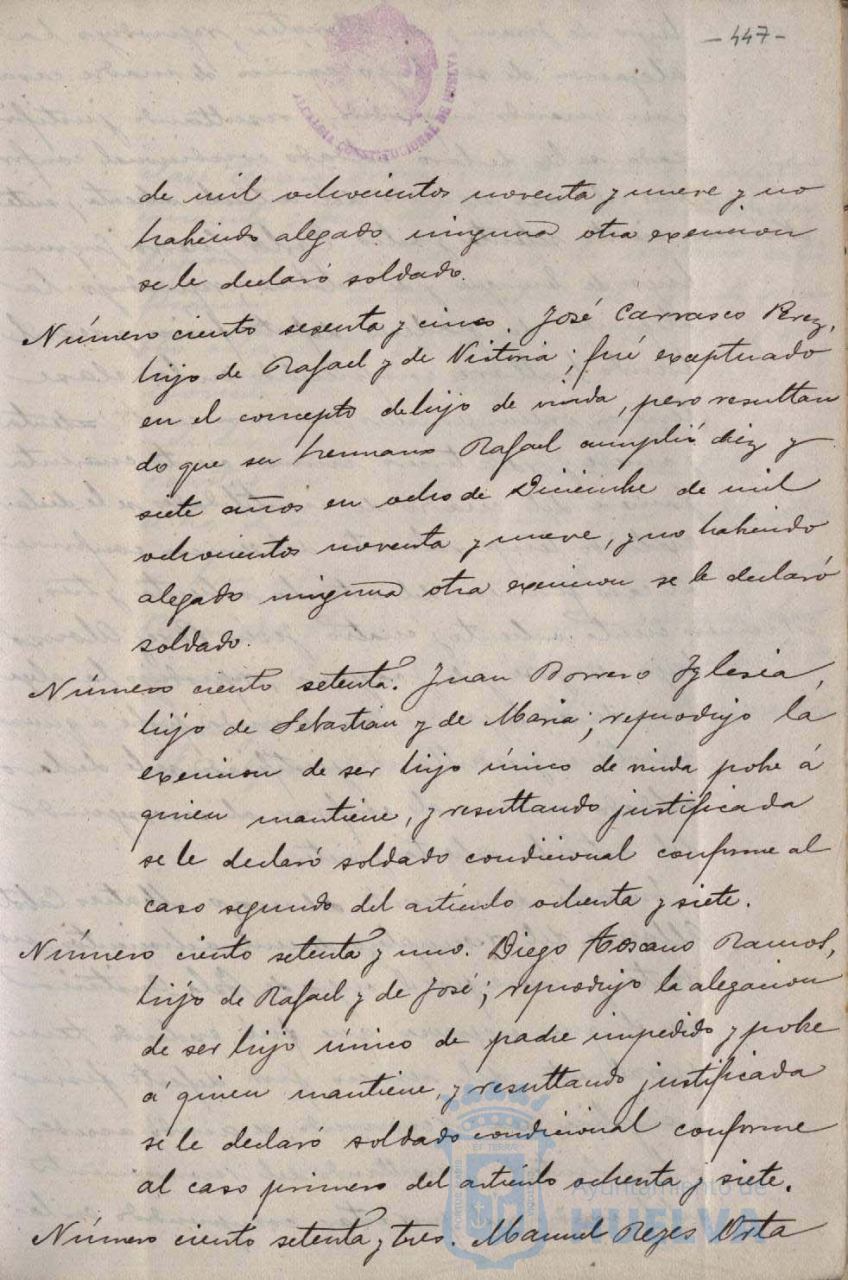 - 447 -
ALCALDIA CONSTITUCIONAL DE HUELVA
de mil ochocientos noventa y nueve y no
habiendo alegado ninguna otra exencion
se le declaró soldado.
Número ciento sesenta y cinco. José Carrasco Perez,
hijo de Rafael y de Victoria; fué exceptuado
en el concepto de hijo de viuda, pero resultan
do que su hermano Rafael cumplió diez y
siete años en ocho de Diciembre de mil
ochocientos noventa y nueve, y no habiendo
alegado ninguna otra exencion se le declaró
soldado.
Número ciento setenta. Juan Borrero Iglesia,
hijo de Sebastian y de Maria; reprodujo la
exencion de ser hijo único de viuda pobre á
quien mantiene, y resultando justificada
se le declaró soldado condicional conforme al
caso segundo del artículo ochenta y siete.
Número ciento setenta y uno. Diego Toscano Ramos,
hijo de Rafael y de José; reprodujo la alegacion
de ser hijo único de padre impedido y pobre
á quien mantiene, y resultando justificada
se le declaró soldado condicional conforme
al caso primero del artículo ochenta y siete.
Número ciento setenta y tres. Manuel Reyes Orta
Ayuntamiento de
HUELVA